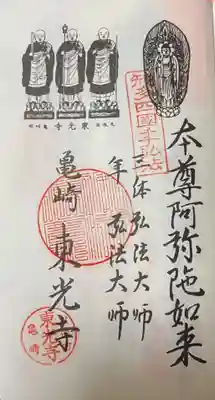 東光寺
知多四國
本尊阿弥陀如来
三体弘法大師
年弘法大師
亀崎 東光寺
東光寺
亀崎